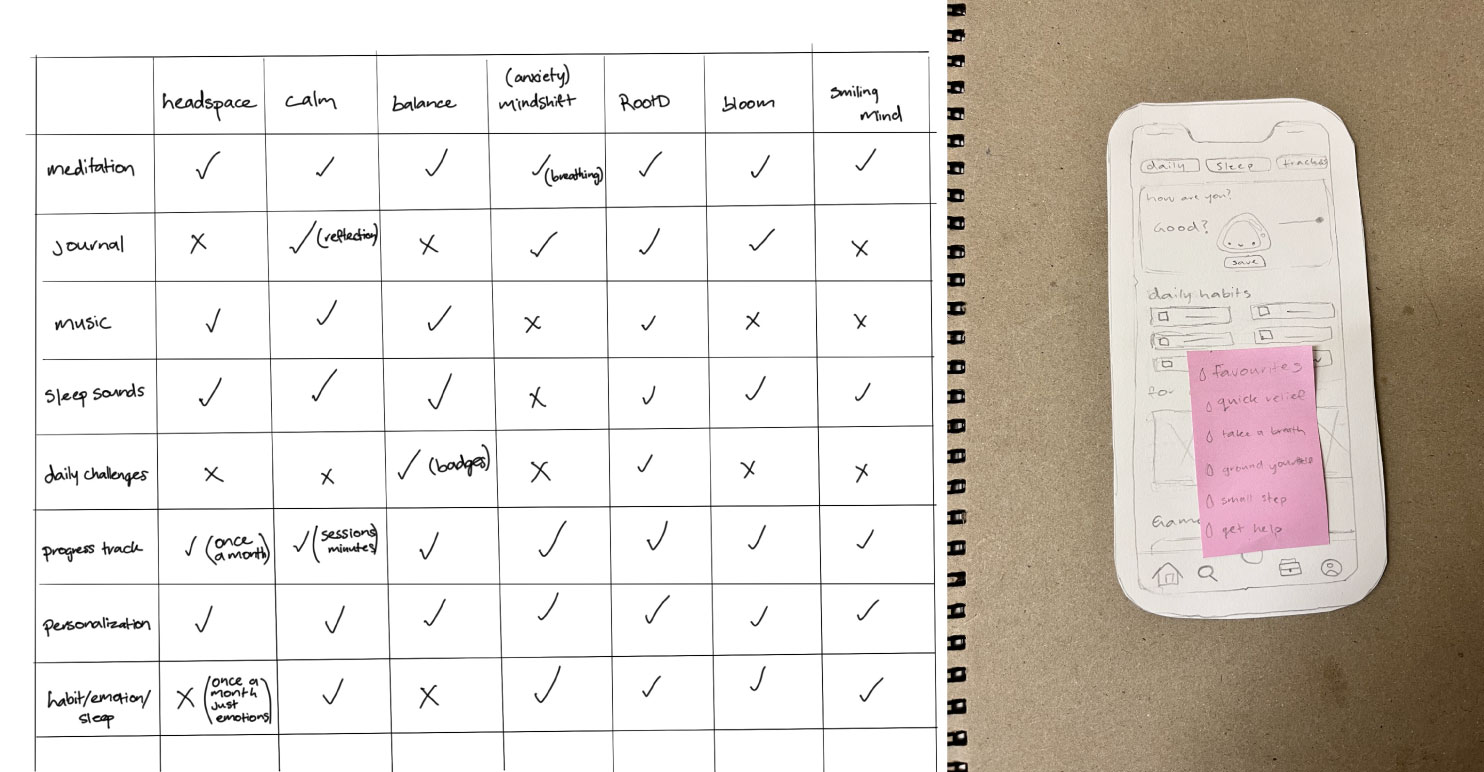 headspace calm balance (anxiety) mindshift RootD bloom smiling mind
meditation ✓ ✓ ✓ ✓ (breathing) ✓ ✓ ✓
journal X ✓ (reflection) X ✓ ✓ ✓ X
music ✓ ✓ ✓ X ✓ X X
sleep sounds ✓ ✓ ✓ X ✓ ✓ ✓
daily challenges X X ✓ (badges) X ✓ X X
progress track ✓ (once a month) ✓ (sessions minutes) ✓ ✓ ✓ ✓ ✓
personalization ✓ ✓ ✓ ✓ ✓ ✓ ✓
habit/emotion/sleep X (once a month just emotions) ✓ X ✓ ✓ ✓ ✓
daily sleep
how are you?
Good?
save
daily habits
for
favourites
quick relief
take a breath
ground yourself
small step
get help
Game